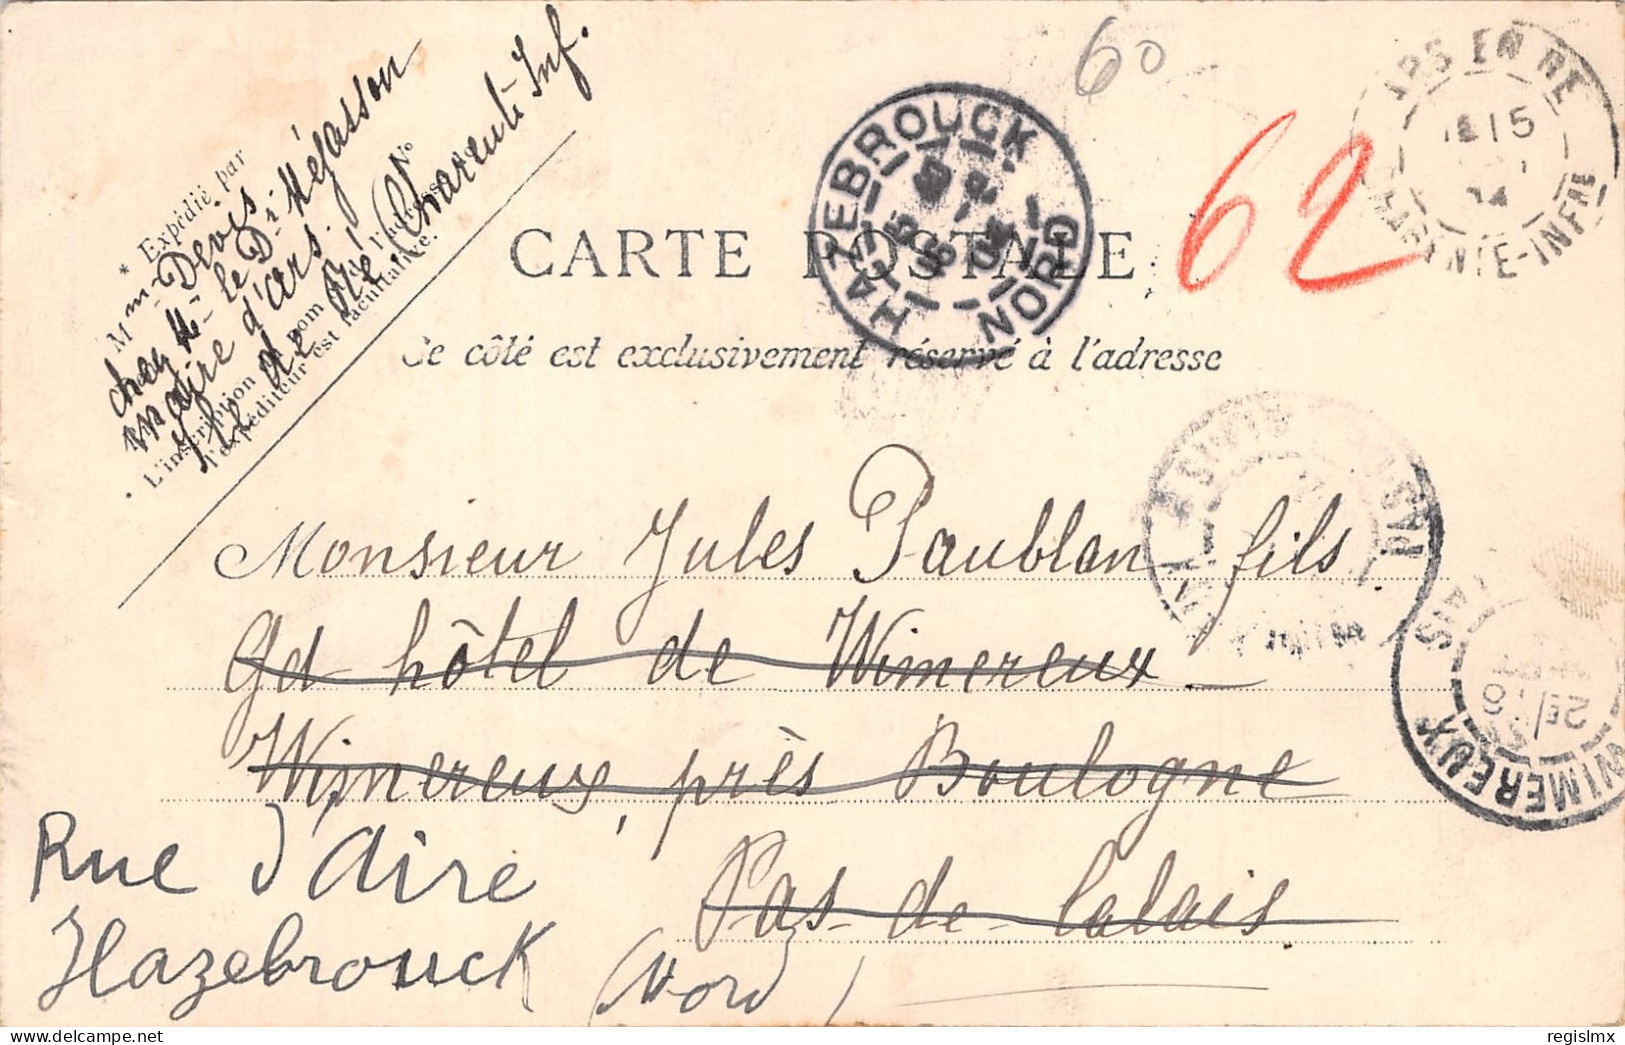 * Expédié par
M
Mm Devis
chez M. le Dr Mégasson
maire d'ars
île de Ré
(Charente Inf.
N°
L'inscription du nom et de l'adresse de
l'expéditeur est facultative.
60
62
ARS EN RÉ
15
14
CHARENTE-INFRE
HAZEBROUCK
NORD
CARTE POSTALE
Ce côté est exclusivement réservé à l'adresse
Monsieur Jules Paublan, fils
Gd hôtel de Wimereux
Wimereux, près Boulogne
Pas-de-Calais
Rue d'Aire
Hazebrouck (Nord)
WIMEREUX
CALAIS
regislmx
delcampe.net